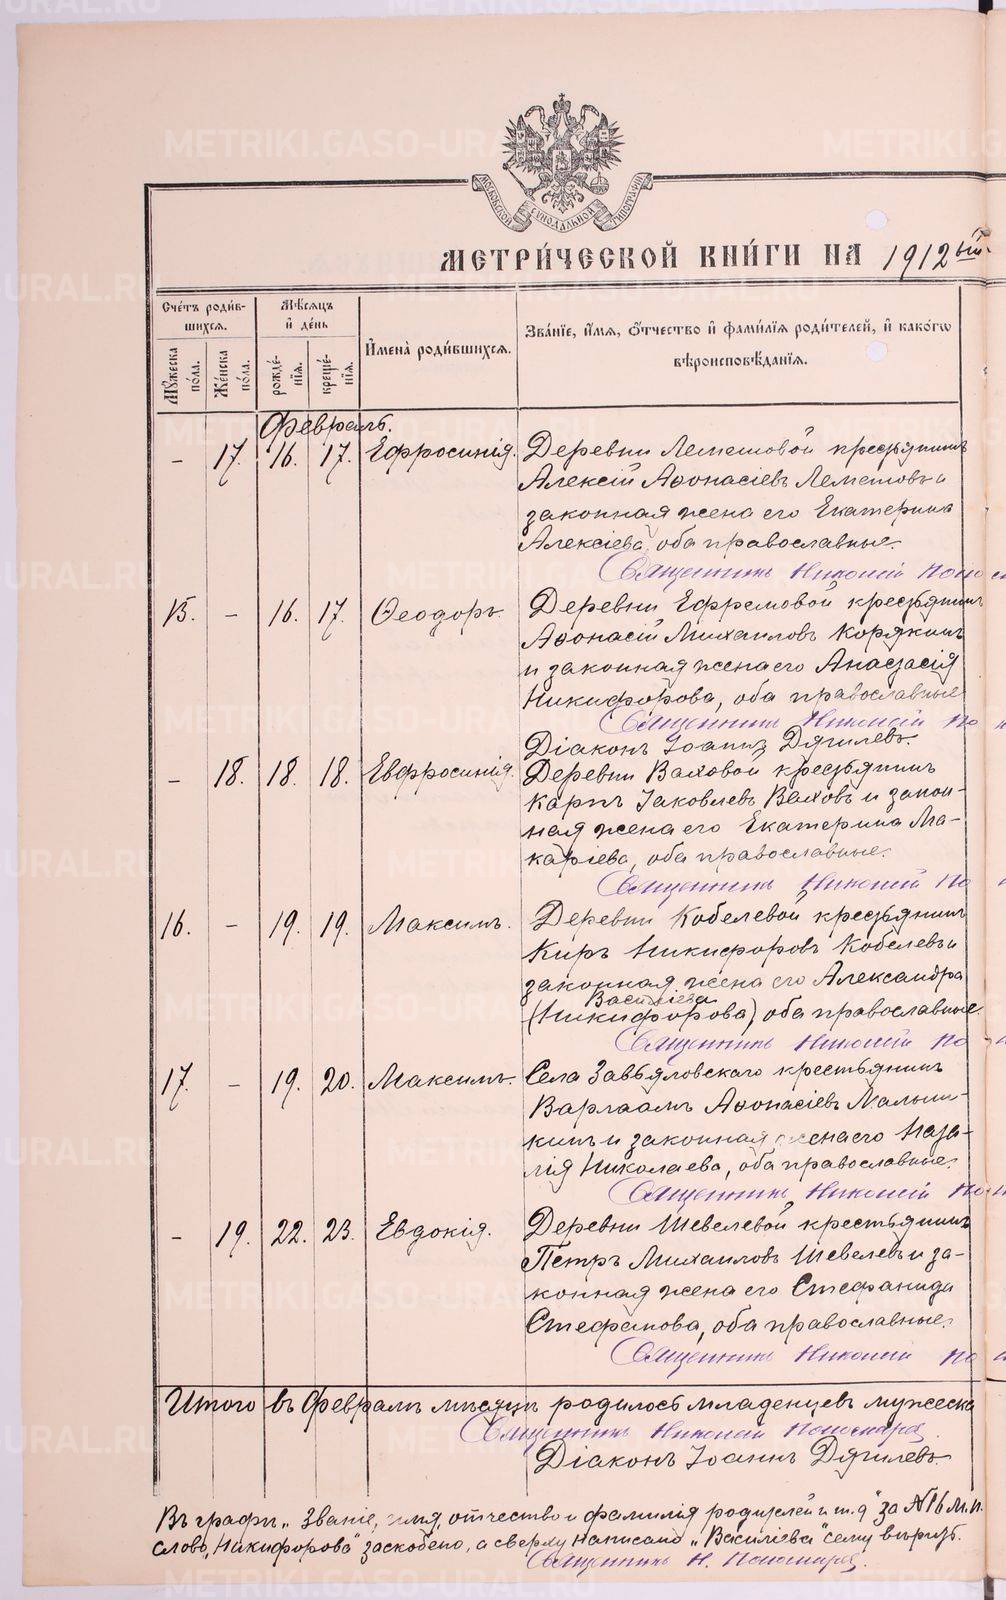 МОСКОВСКОЙ СѴНОДАЛЬНОЙ ТИПОГРАФІИ
МЕТРИ́ЧЕСКОЙ КНИ́ГИ НА 1912ый
Сче́тъ роди́в-
шихся.
Мѣ́сяцъ
и҆ де́нь
И҆мена̀ роди́вшихся.
Зва́нїе, и҆́мя, ѻ҆́тчество и҆ фами́лїя роди́телей, и҆ како́гѡ
вѣроисповѣ́данїя.
Мꙋ́жеска
по́ла.
Же́нска
по́ла.
рожде́-
нїя.
креще́-
нїя.
Февраль.
- 17. 16. 17. Ефросинія. Деревни Лемешовой крестьянинъ
Алексій Аѳонасіевъ Лемешовъ и
законная жена его Екатерина
Алексіева, оба православные.
Священникъ Николай Поно
15. - 16. 17. Ѳеодоръ. Деревни Ефремовой крестьянинъ
Аѳонасій Михаиловъ Корякинъ
и законная жена его Анастасія
Никифорова, оба православные.
Священникъ Николай По
Діаконъ Іоаннъ Дягилевъ.
- 18. 18. 18. Евфросинія. Деревни Ваховой крестьянинъ
Карпъ Іаковлевъ Ваховъ и закон-
ная жена его Екатерина Ма-
каріева, оба православные.
Священникъ Николай По
16. - 19. 19. Максимъ. Деревни Кобелевой крестьянинъ
Киръ Никифоровъ Кобелевъ и
законная жена его Александра
Василіева
(Никифорова), оба православные.
Священникъ Николай По
17. - 19. 20. Максимъ. Села Завьяловскаго крестьянинъ
Варлаамъ Аѳонасіевъ Мальши-
кинъ и законная жена его Ната-
лія Николаева, оба православные.
Священникъ Николай По
- 19. 22. 23. Евдокія. Деревни Шевелевой крестьянинъ
Петръ Михаиловъ Шевелевъ и за-
конная жена его Стефанида
Стефанова, оба православные.
Священникъ Николай По
Итого въ Февралѣ мѣсяцѣ родилось младенцевъ мужеска
Священникъ Николай Пономаревъ.
Діаконъ Іоаннъ Дягилевъ.
Въ графѣ „Званіе, имя, отчество и фамилія родителей и т. д" за №16 м. п.
слово „Никифорова" заскоблено, а сверху написано „Василіева" сему вѣрить.
Священникъ Н. Пономаревъ.
METRIKI.GASO-URAL.RU